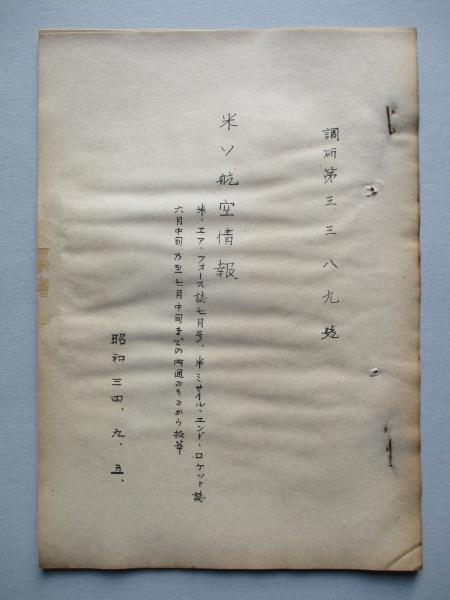 調研第三、三八九號
米ソ航空情報
米・エア・フォース誌七月号、米ミサイル・エンド・ロケット誌
六月中旬乃至七月中旬までの四週のものから抜萃
昭和三四、九、五、